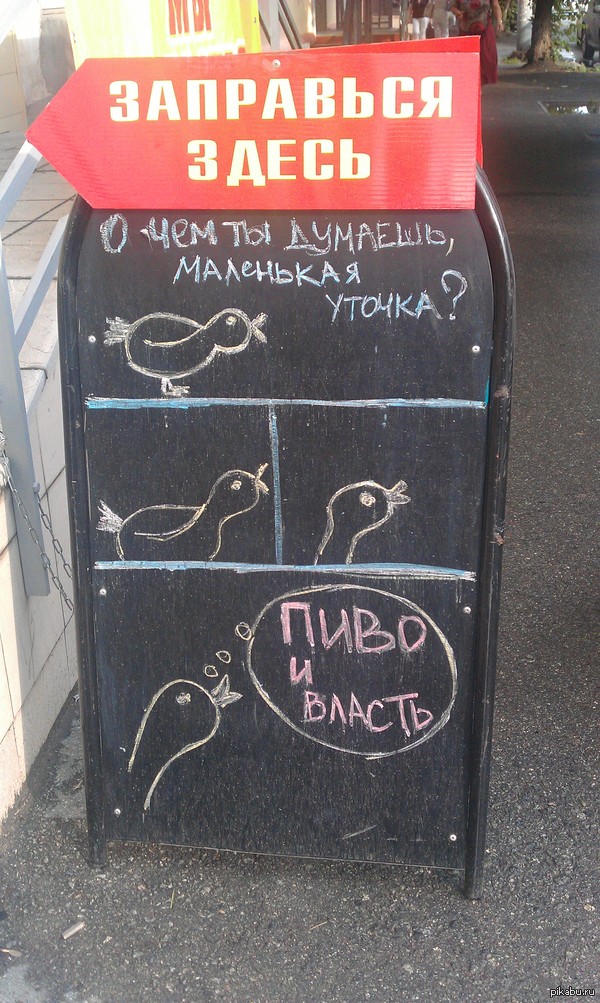 МЫ
ЗАПРАВЬСЯ
ЗДЕСЬ
О чем ты думаешь,
маленькая
уточка?
ПИВО
и
ВЛАСТЬ
pikabu.ru